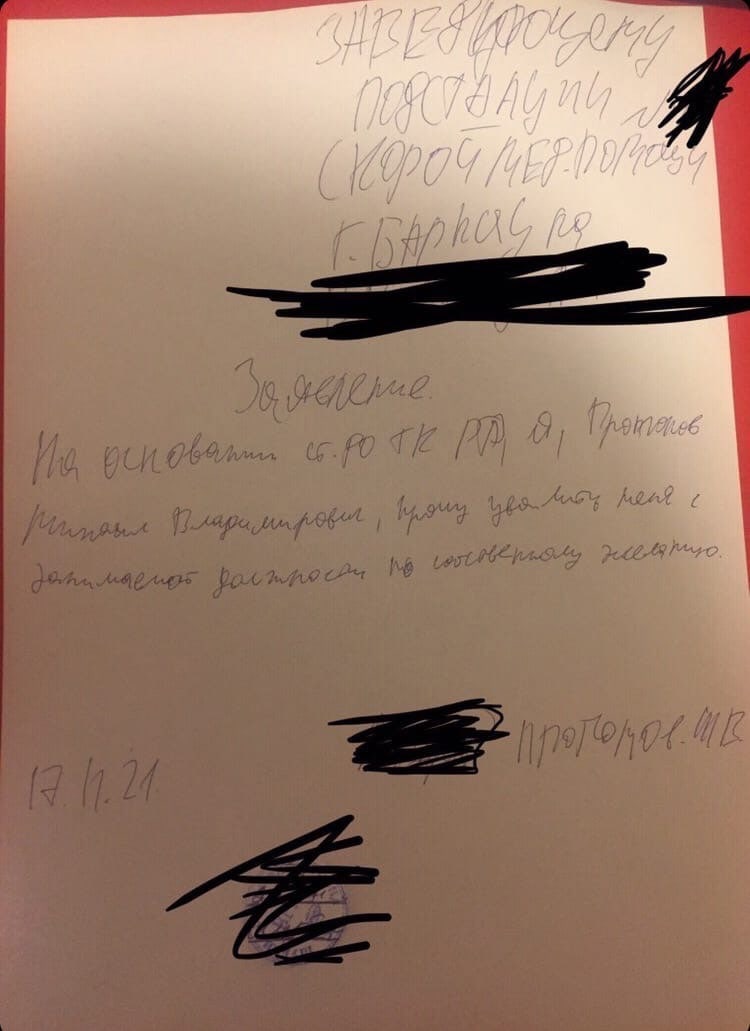 ЗАВЕДУЮЩЕМУ
ПОДСТАНЦИИ №
СКОРОЙ МЕД.ПОМОЩИ
Г. БАРНАУЛА
Заявление.
На основании ст. 80 ТК РФ, я,
Михаил Владимирович, прошу уволить меня с
занимаемой должности по собственному желанию.
М.В.
17.11.21